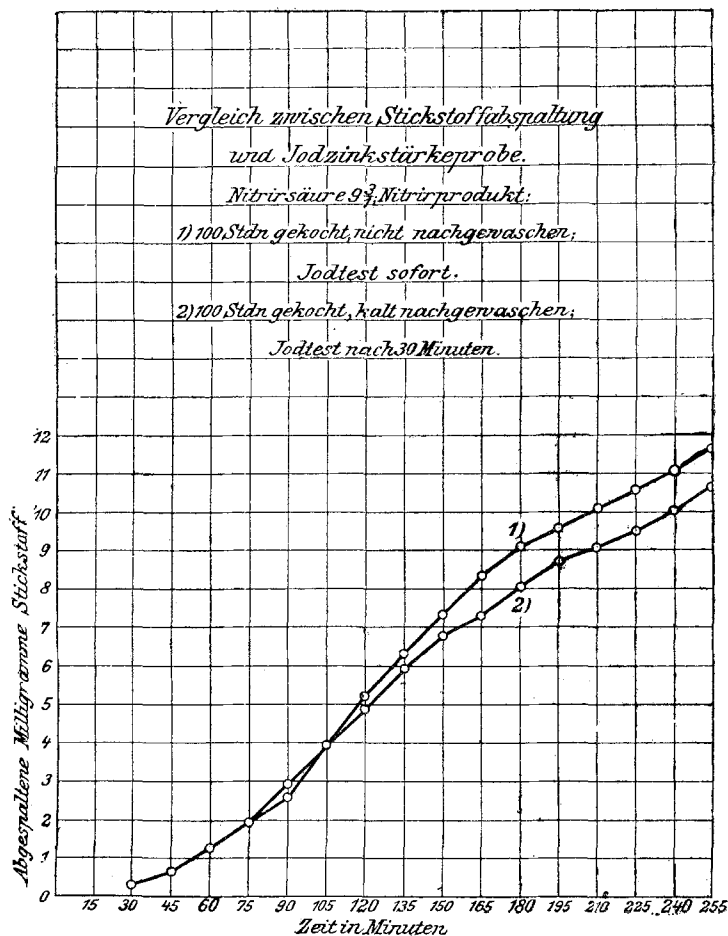 Vergleich zwischen Stickstoffabspaltung
und Jodzinkstärkeprobe.
Nitrirsäure 9 3/1; Nitrirprodukt:
1) 100 Stdn gekocht, nicht nachgewaschen;
Jodtest sofort.
2) 100 Stdn gekocht, kalt nachgewaschen;
Jodtest nach 30 Minuten.
Abgespaltene Milligramme Stickstoff
12
11
10
9
8
7
6
5
4
3
2
1
0
1)
2)
15 30 45 60 75 90 105 120 135 150 165 180 195 210 225 240 255
Zeit in Minuten